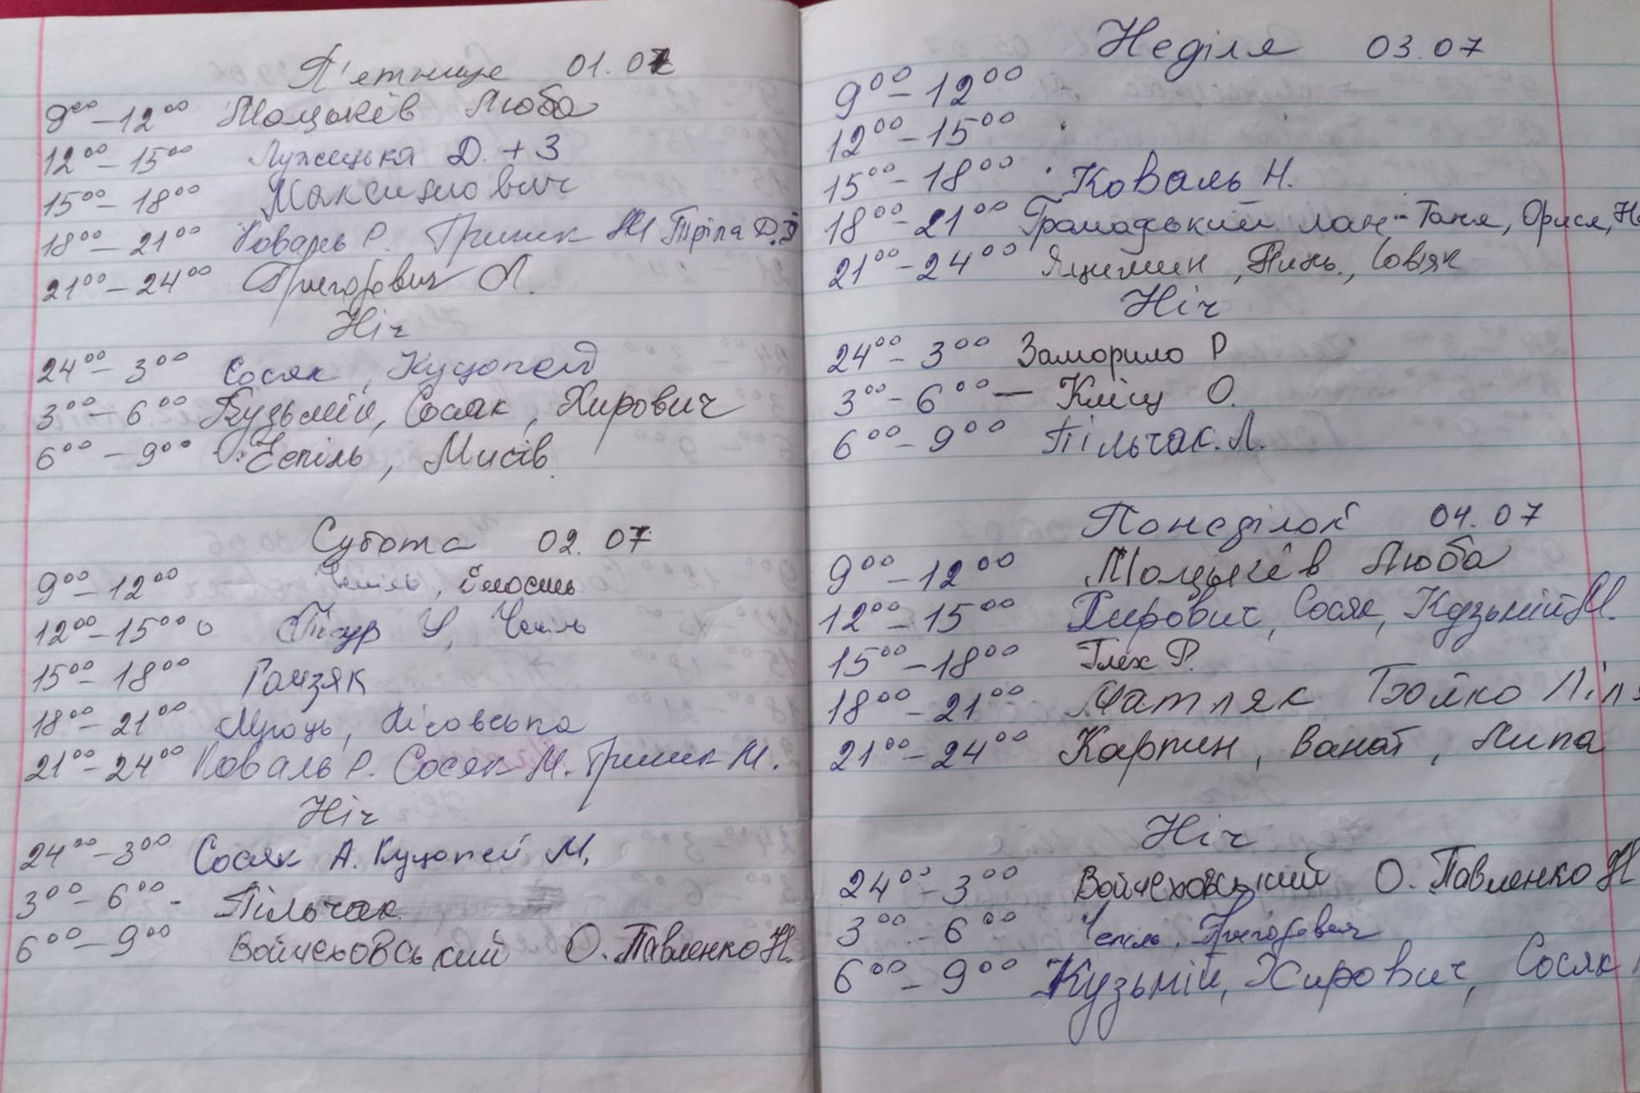 П'ятниця 01.07
9⁰⁰-12⁰⁰ Мацьків Люба
12⁰⁰-15⁰⁰ Лужецька Д. + 3
15⁰⁰-18⁰⁰ Максимович
18⁰⁰-21⁰⁰ Коваль Р. Гришик М Тріпа Д.
21⁰⁰-24⁰⁰ Григорович Л.
Ніч
24⁰⁰-3⁰⁰ Сосяк, Куцопей
3⁰⁰-6⁰⁰ Кузьмій, Сосяк, Хирович
6⁰⁰-9⁰⁰ Чепіль, Мисів
Субота 02.07
9⁰⁰-12⁰⁰ Чепіль,
12⁰⁰-15⁰⁰ Чепіль
15⁰⁰-18⁰⁰ Гамзяк
18⁰⁰-21⁰⁰ Мроць, Лісовська
21⁰⁰-24⁰⁰ Коваль Р. Сосяк М. Гришик М.
Ніч
24⁰⁰-3⁰⁰ Сосяк А. Куцопей М,
3⁰⁰-6⁰⁰ - Пільчак
6⁰⁰-9⁰⁰ Войчеховський О. Павленко Н.
Неділя 03.07
9⁰⁰-12⁰⁰
12⁰⁰-15⁰⁰
15⁰⁰-18⁰⁰ Коваль Н.
18⁰⁰-21⁰⁰ Громадський лан - Таня, Орися,
21⁰⁰-24⁰⁰ Яцишин, Линь, Совяк
Ніч
24⁰⁰-3⁰⁰ Заморило Р
3⁰⁰-6⁰⁰ — Кліщ О.
6⁰⁰-9⁰⁰ Пільчак. Л.
Понеділок 04.07
9⁰⁰-12⁰⁰ Мацьків Люба
12⁰⁰-15⁰⁰ Хирович, Сосяк, Кузьмій М.
15⁰⁰-18⁰⁰ Глех Р.
18⁰⁰-21⁰⁰ Матляк Бойко
21⁰⁰-24⁰⁰ Карпин, Ванат, Липа
Ніч
24⁰⁰-3⁰⁰ Войчеховський О. Павленко Н
3⁰⁰-6⁰⁰ Чепіль, Григорович
6⁰⁰-9⁰⁰ Кузьмій, Хирович, Сосяк